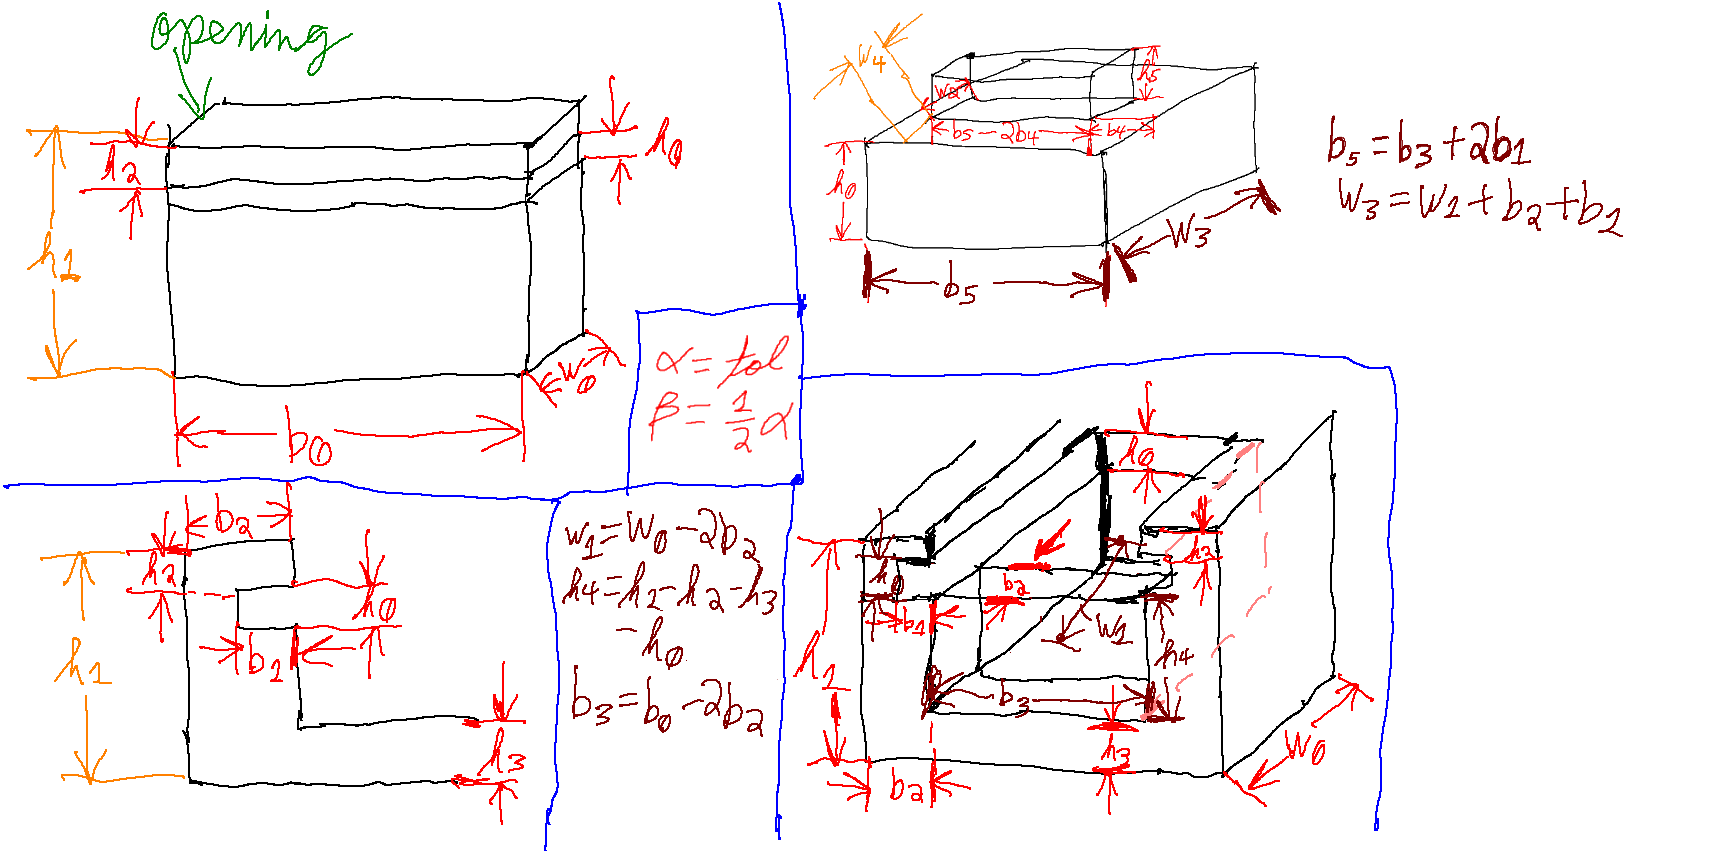 opening
h2
h0
h1
w0
b0
w4
h5
w2
b5-2b4
b4
h0
w3
b5
b5=b3+2b1
w3=w1+b2+b1
α=tol
β=1/2 α
b2
h2
h0
b1
h1
h3
w1=w0-2b2
h4=h1-h2-h3
-h0
b3=b0-2b2
h0
h2
h0
b2
b1
w1
h1
h4
b3
h3
w0
b2